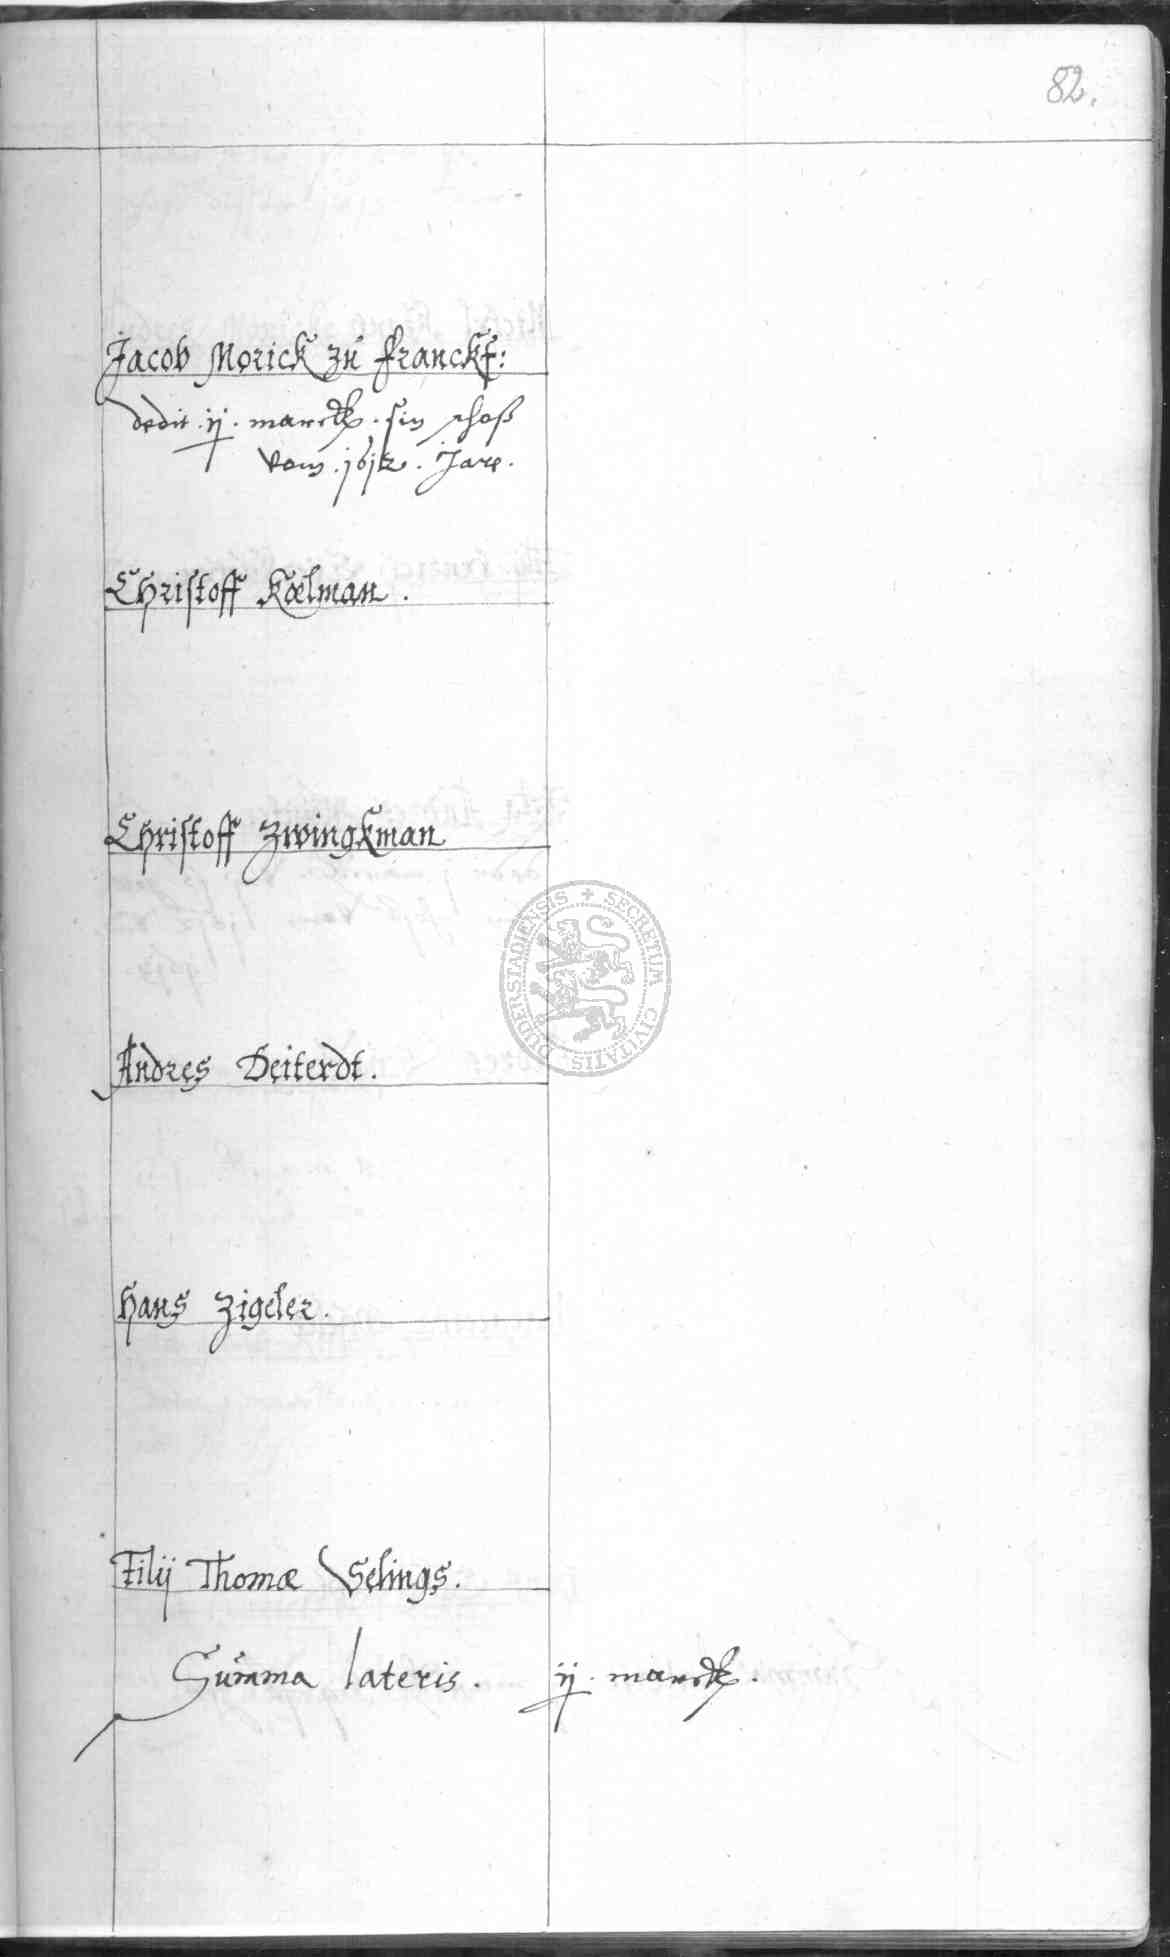 82.
Jacob Morick zu franckf:
dedit . ij . marck . sin schoß
vom . 1612 . Jare .
Christoff Kœlman .
Christoff Zwingkman
Andres Deiterdt .
Hans Zigeler .
Filij Thomæ Selings .
Summa lateris . ij . marck .
SECRETUM CIVITATIS DUDERSTADIENSIS